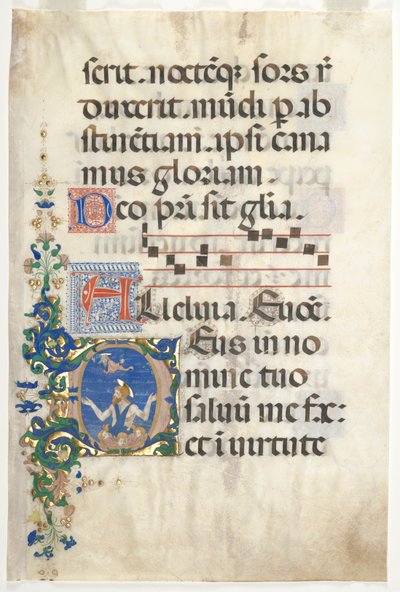 serit. noctẽq; sors r̃
duxerit. mũdi ꝑ ab
stinẽtiam. ipsi cana
mus gloriam.
Deo pr̃i sit gl̃ia.
Alleluia. Euoẽ.
Deus in no
mine tuo
saluũ me fac:
et ĩ uirtute